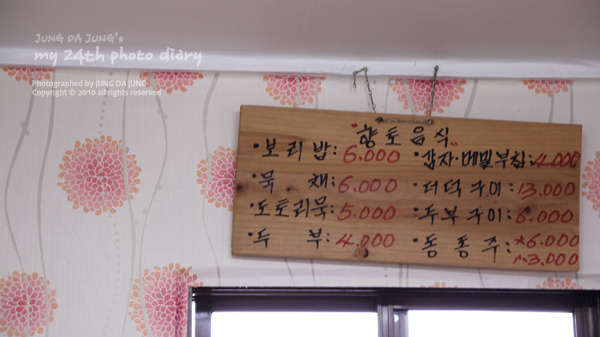 JUNG DA JUNG's
my 24th photo diary
Photographed by JUNG DA JUNG
Copyright © 2010 all rights reserved
"향토음식"
·보리밥: 6.000 ·감자·메밀부침: 4.000
·묵 채: 6.000 ·더덕구이: 13.000
·도토리묵: 5.000 ·두부구이: 6.000
·두 부: 4.000 ·동동주: 大6.000
小3.000